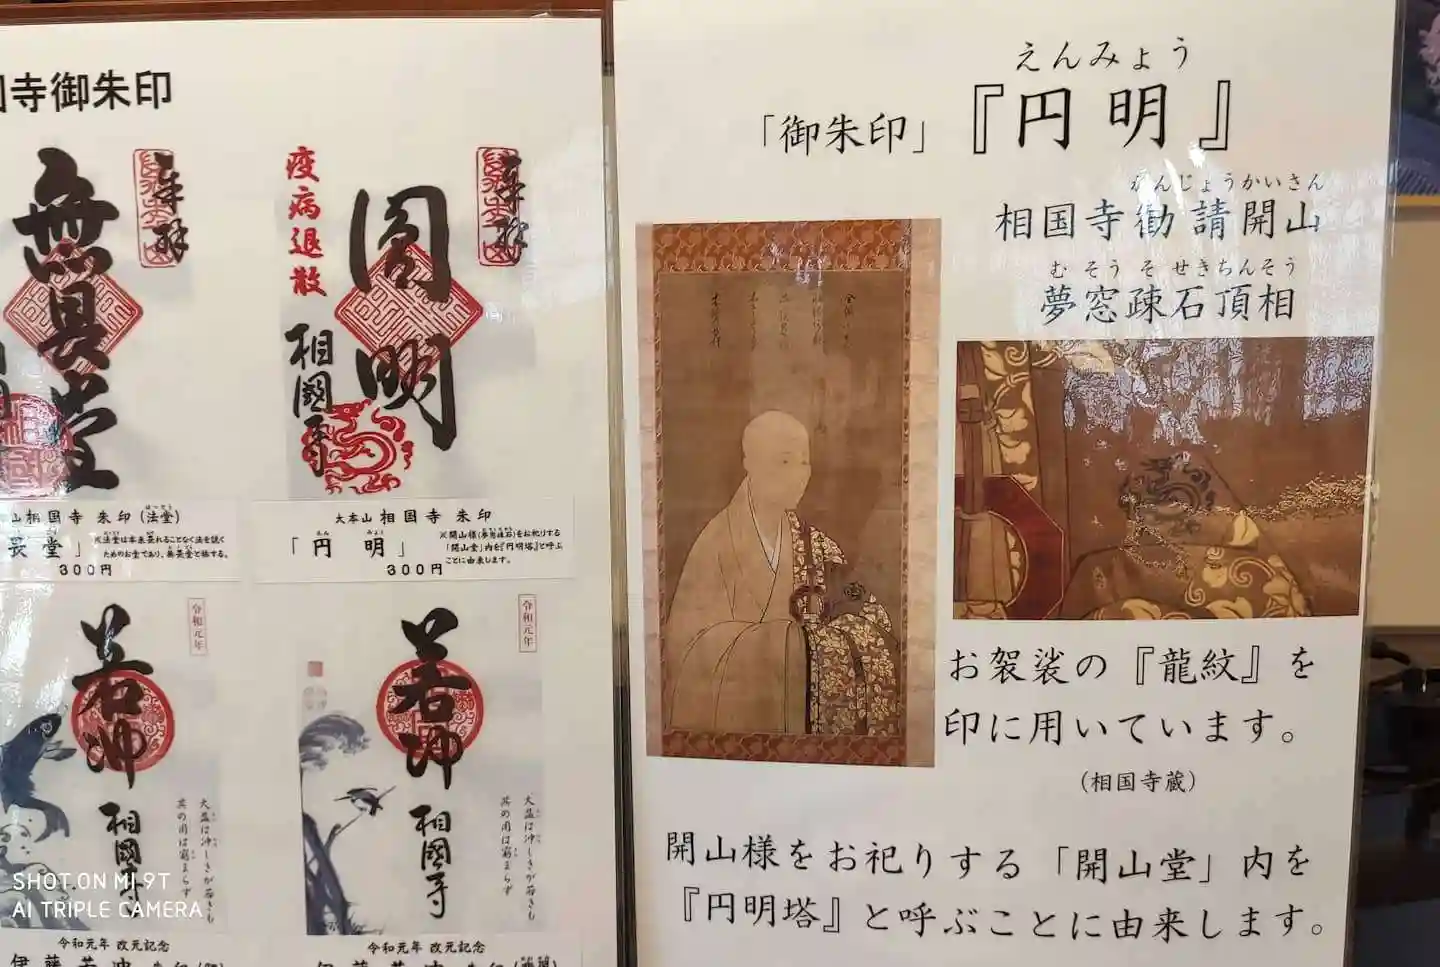 寺御朱印
無畏堂
奉拝
疫病退散
圓明
奉拝
相國寺
山相国寺 朱印(法堂)
はっとう
畏堂」
※法堂は本来畏れることなく法を説く
ためのお堂であり、無畏堂と称する。
300円
大本山 相国寺 朱印
えん みょう
「円 明」
※開山様(夢窓疎石)をお祀りする
「開山堂」内を『円明塔』と呼ぶ
ことに由来します。
300円
令和元年
若冲
相國寺
大盈は冲しきが若きも
其の用は窮まらず
令和元年 改元記念
令和元年
若冲
相國寺
大盈は冲しきが若きも
其の用は窮まらず
令和元年 改元記念
えんみょう
「御朱印」『円明』
かんじょうかいさん
相国寺勧請開山
む そう そ せきちんそう
夢窓疎石頂相
お袈裟の『龍紋』を
印に用いています。
(相国寺蔵)
開山様をお祀りする「開山堂」内を
『円明塔』と呼ぶことに由来します。
SHOT ON MI 9T
AI TRIPLE CAMERA